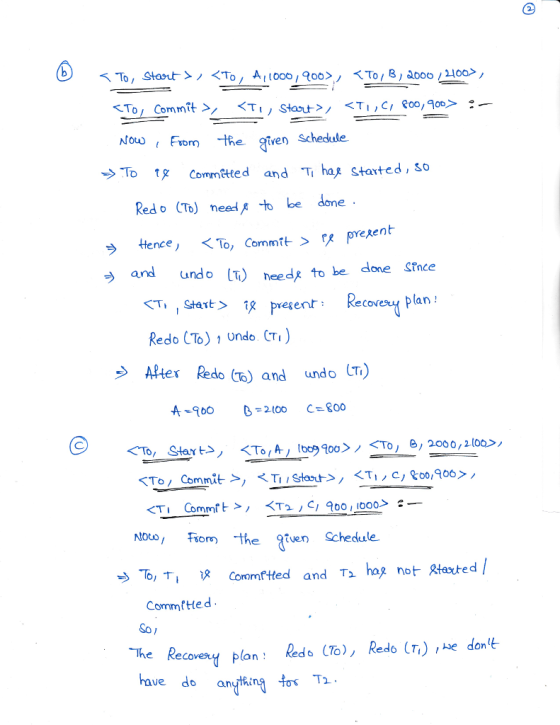 2
(b) < To, Start >, <To, A, 1000, 900>, <To, B, 2000, 2100>,
<To, Commit >, <T1, Start>, <T1, C, 800, 900> :-
Now, From the given Schedule
⇒ To is committed and T1 has started, so
Redo (To) needs to be done.
⇒ Hence, <To, Commit > is present
⇒ and undo (T1) needs to be done since
<T1, Start> is present: Recovery plan:
Redo (To), Undo (T1)
⇒ After Redo (To) and undo (T1)
A=900 B=2100 C=800
(c) <To, Start>, <To, A, 1000, 900>, <To, B, 2000, 2100>,
<To, Commit >, <T1, Start>, <T1, C, 800, 900>,
<T1 Commit>, <T2, C, 900, 1000> :-
Now, From the given Schedule
⇒ To, T1 is committed and T2 has not started /
committed.
So,
The Recovery plan: Redo (To), Redo (T1), we don't
have do anything for T2.